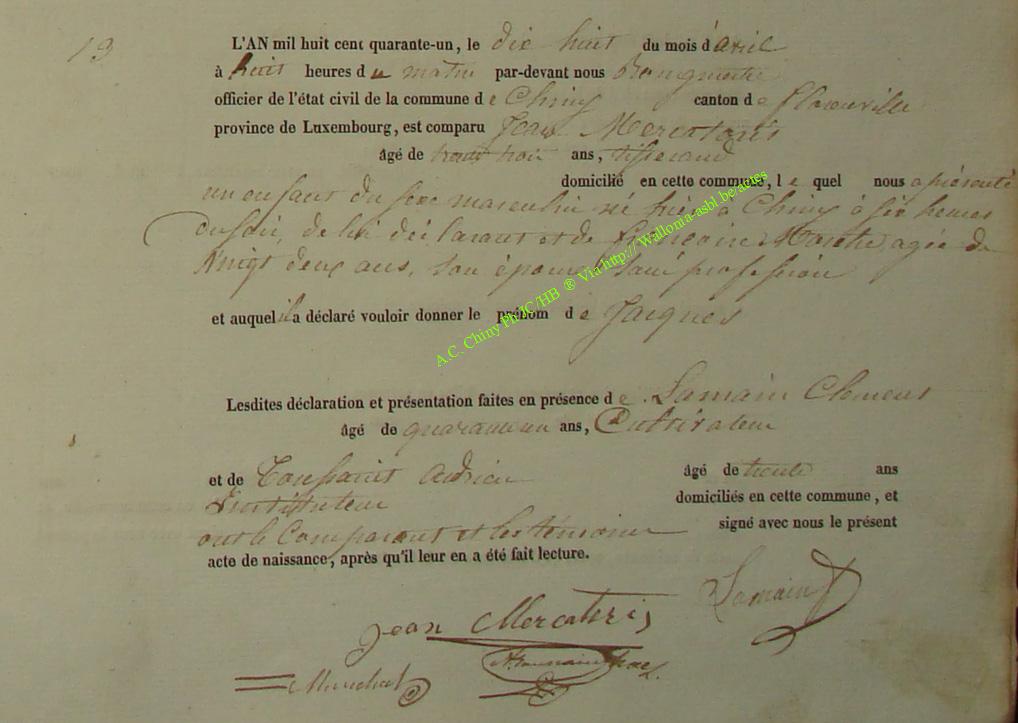 13
L'AN mil huit cent quarante-un, le dix huit du mois d'avril
à huit heures du matin par-devant nous
officier de l'état civil de la commune de Chiny canton de Florenville
province de Luxembourg, est comparu Jean Mercatoris
âgé de trente trois ans, tisserand
domicilié en cette commune, le quel nous a présenté
un enfant du sexe masculin né hier à Chiny à six heures
du soir, de lui déclarant et de agée de
vingt deux ans, son épouse sans profession
et auquel il a déclaré vouloir donner le prénom de Jacques
Lesdites déclaration et présentation faites en présence de Lamain Clement
âgé de quarante un ans, Cultivateur
et de Toussaint Adrien âgé de trente ans
Instituteur domiciliés en cette commune, et
ont le Comparant et les témoins signé avec nous le présent
acte de naissance, après qu'il leur en a été fait lecture.
Lamain
Jean Mercatoris
A.C. Chiny Ph JC/HB ® Via http:// Wallonia-asbl be/actes